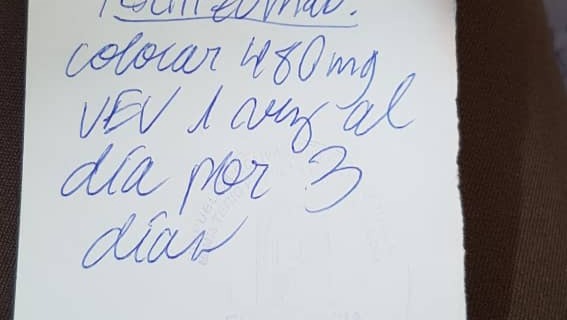 colocar 480mg
VEV 1 vez al
día por 3
días